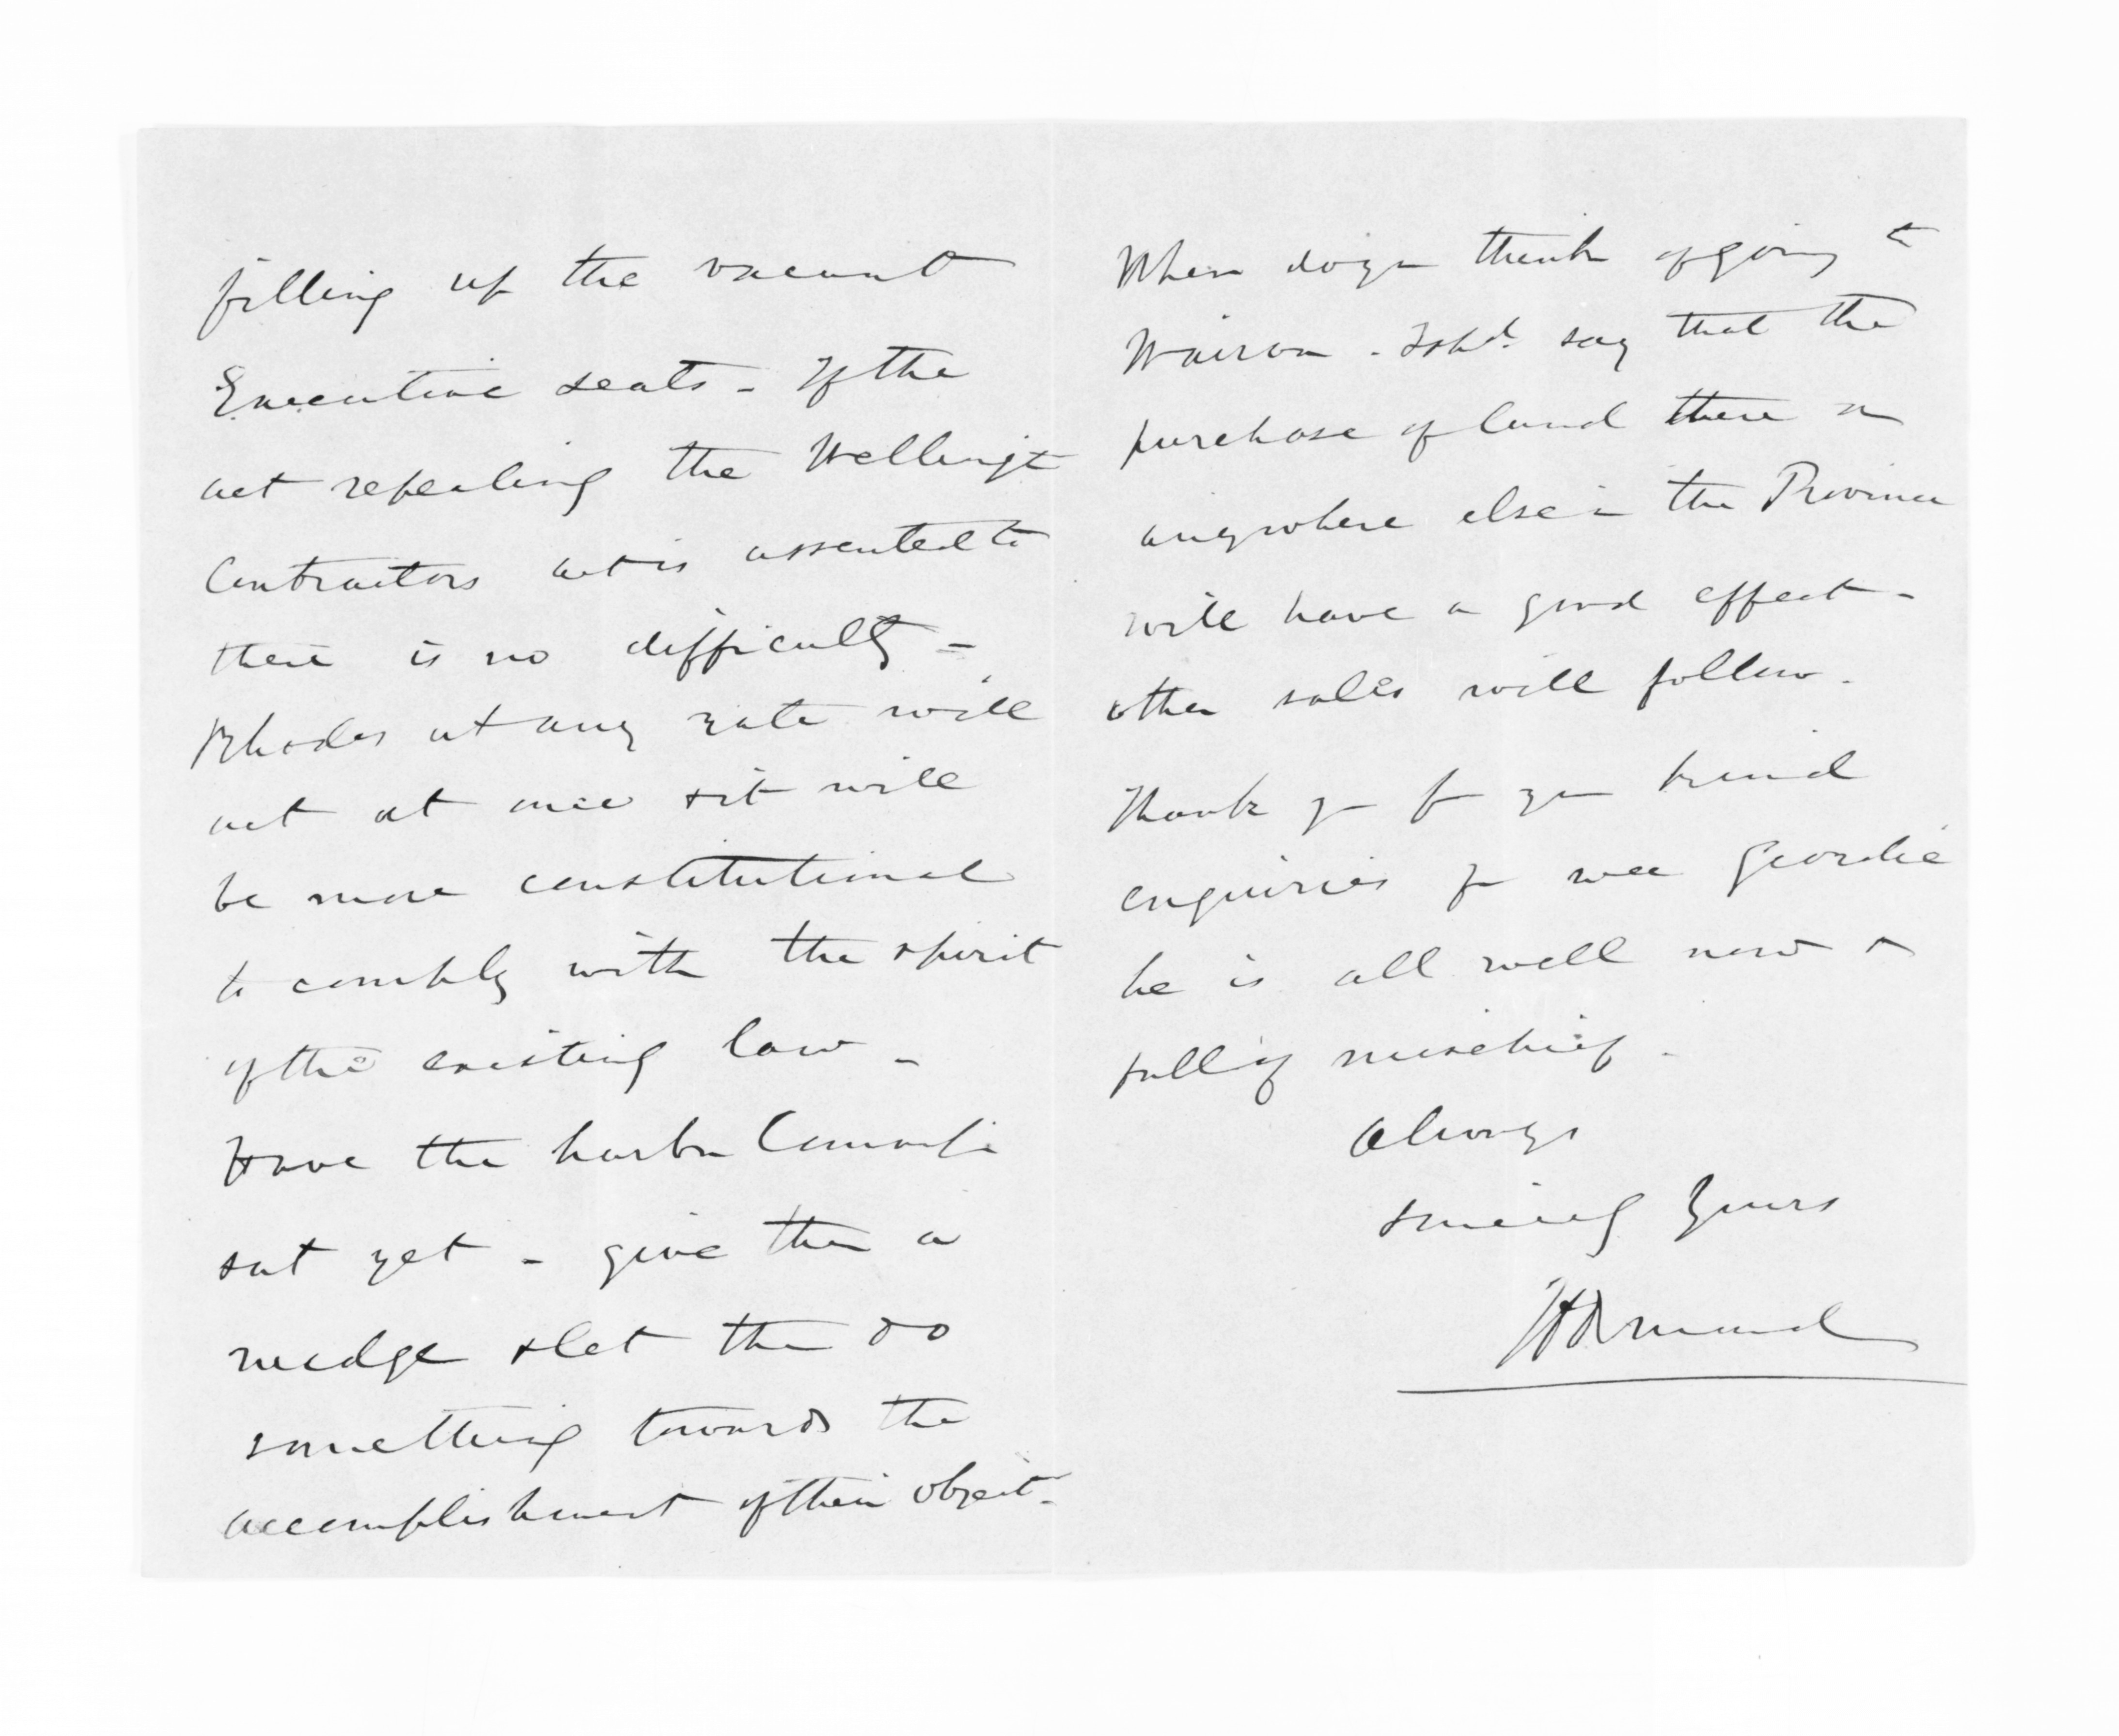 filling up the vacant
Executive seats - If the
act repealing the Wellingt
Contractors act is assented to
there is no difficulty -
Rhodes at any rate will
act at once & it will
be more constitutional
to comply with the spirit
of the existing law -
Have the harbr Commrs
sat yet - give them a
nudge & let them do
something towards the
accomplishment of their object -
When do you think of going to
Wairoa - I shd. say that the
purchase of land there or
anywhere else in the Province
will have a good effect -
other sales will follow.
Thank you for your kind
enquiries for wee Geordie
he is all well now &
full of mischief.
Always
sincerely yours
JD Ormond